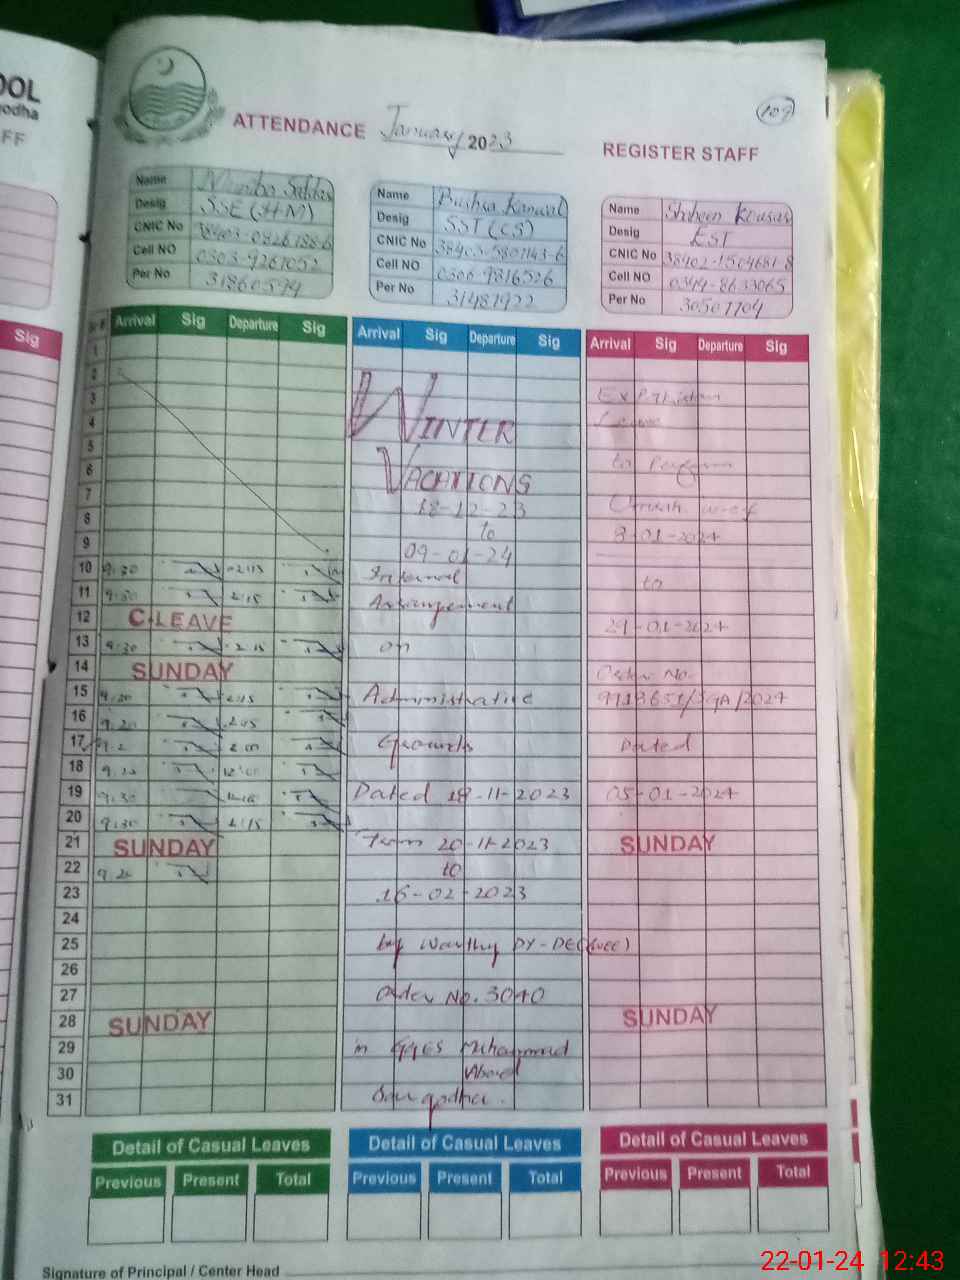 OOL
godha
FF
Sig
109
ATTENDANCE January 2023
REGISTER STAFF
Name
Desig SSE (HM)
CNIC No
Cell NO 0303-9261052
Per No 31860594
Name Bushra Kanwal
Desig SST (CS)
CNIC No 38403-5801143-6
Cell NO 0306-9816526
Per No 31481922
Name Shiheen Kousar
Desig EST
CNIC No 38402-1504681-8
Cell NO 0349-8633065
Per No 30507704
Arrival Sig Departure Sig
Arrival Sig Departure Sig
Arrival Sig Departure Sig
1
2
3 Ex Pakistan
4 WINTER Leave
5
6 VACATIONS to Perform
7 18-12-23
8 to Umrah w-e-f
9 09-01-24 8-01-2024
10 9:30 2:15 Internal
11 9:30 2:15 Arrangement to
12 C.LEAVE
13 9:30 2:15 on 29-01-2024
14 SUNDAY Order No.
15 9:20 2:15 Administrative
16 9:20 2:05
17 9:2 2:00 Grounds Dated
18 12:00
19 9:30 Dated 18-11-2023 05-01-2024
20 9:30 2:15
21 SUNDAY From 20-11-2023 SUNDAY
22 to
23 16-02-2023
24
25 by Worthy DY-DEO(WEE)
26
27 Order No. 3040
28 SUNDAY SUNDAY
29 in GGES Muhammad
30 Abad
31 Sargodha.
Detail of Casual Leaves
Previous Present Total
Detail of Casual Leaves
Previous Present Total
Detail of Casual Leaves
Previous Present Total
Signature of Principal / Center Head
22-01-24 12:43